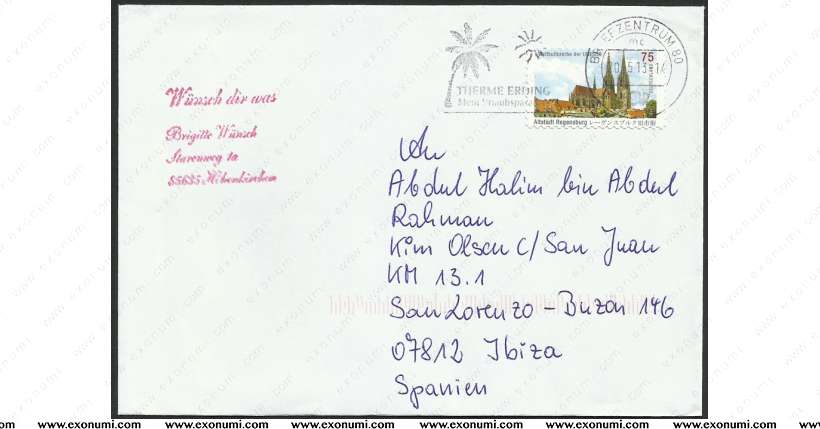 Wünsch dir was
Brigitte Wünsch
Starenweg 1a
85635 Höhenkirchen
THERME ERDING
Mein Urlaubsparadies
BRIEFZENTRUM 80
mc
75
Altstadt Regensburg レーゲンスブルク旧市街
An
Abdul Halim bin Abdul
Rahman
Kim Olsen C/San Juan
KM 13.1
San Lorenzo - Buzón 146
07812 Ibiza
Spanien
www.exonumi.com www.exonumi.com www.exonumi.com www.exonumi.com www.exonumi.com www.exonumi.com